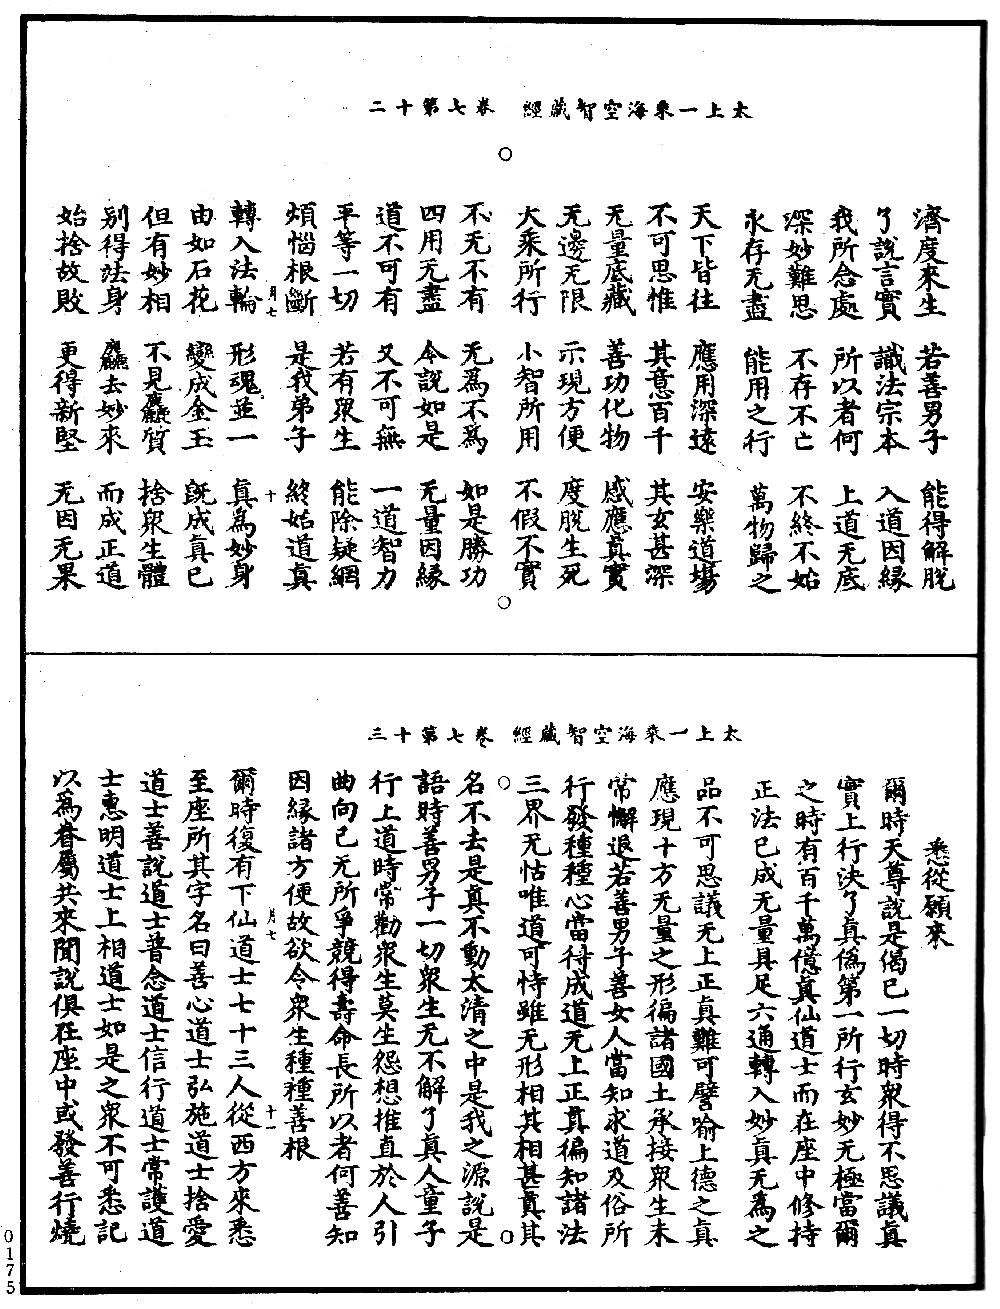 太上一乘海空智藏經　卷七第十二
濟度來生　若善男子　能得解脫
了說言實　識法宗本　入道因緣
我所念處　所以者何　上道无底
深妙難思　不存不亡　不終不始
永存无盡　能用之行　萬物歸之
天下皆往　應用深遠　安樂道場
不可思惟　其意百千　其玄甚深
无量底藏　善功化物　感應真實
无邊无限　示現方便　度脫生死
大乘所行　小智所用　不假不實
不无不有　无為不為　如是勝功
四用无盡　令說如是　无量因緣
道不可有　又不可無　一道智力
平等一切　若有眾生　能除疑網
煩惱根斷　是我弟子　終始道真
月七　十
轉入法輪　形魂並一　真為妙身
由如石花　變成金玉　既成真已
但有妙相　不見麤質　捨眾生體
別得法身　麤去妙來　而成正道
始捨故敗　更得新堅　无因无果
太上一乘海空智藏經　卷七第十三
悉從願來
爾時天尊說是偈已一切時眾得不思議真
實上行決了真偽第一所行玄妙无極當爾
之時有百千萬億真仙道士而在座中修持
正法已成无量具足六通轉入妙真无為之
品不可思議无上正真難可譬喻上德之真
應現十方无量之形徧諸國土承接眾生未
常懈退若善男子善女人當知求道及俗所
行發種種心當得成道无上正真徧知諸法
三界无怙唯道可恃雖无形相其相甚真其
名不去是真不動太清之中是我之源說是
語時善男子一切眾生无不解了真人童子
行上道時常勸眾生莫生怨想推直於人引
曲向已无所爭競得壽命長所以者何善知
因緣諸方便故欲令眾生種種善根
月七　十一
爾時復有下仙道士七十三人從西方來悉
至座所其字名曰善心道士弘施道士捨愛
道士善說道士普念道士信行道士常護道
士惠明道士上相道士如是之眾不可悉記
以為眷屬共來聞說俱在座中或發善行燒
0175